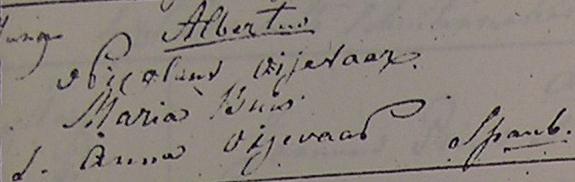 Albertus
Nicolaus Oijevaar
Maria Buis
S. Anna Oijevaar Spanb.